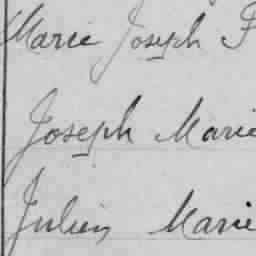 Marie Joseph F
Joseph Marie
Julien Marie